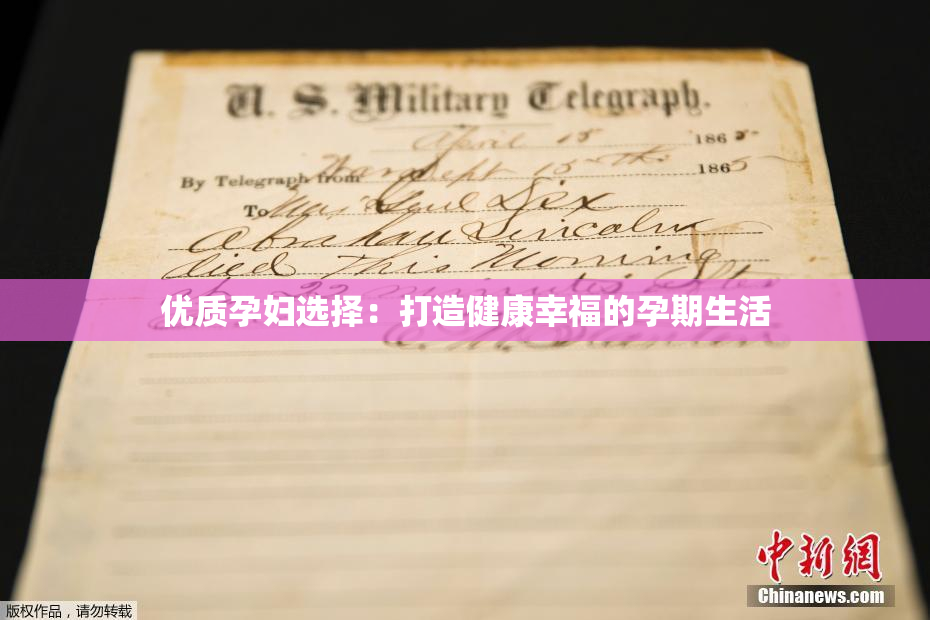 U. S. Military Telegraph.
April 15 1865
By Telegraph from War Dept 15th 1865
To Maj Genl Dix
Abraham Lincoln
died this Morning
at 22 minutes after
优质孕妇选择：打造健康幸福的孕期生活
E. M. Stanton
中新网
Chinanews.com
版权作品，请勿转载